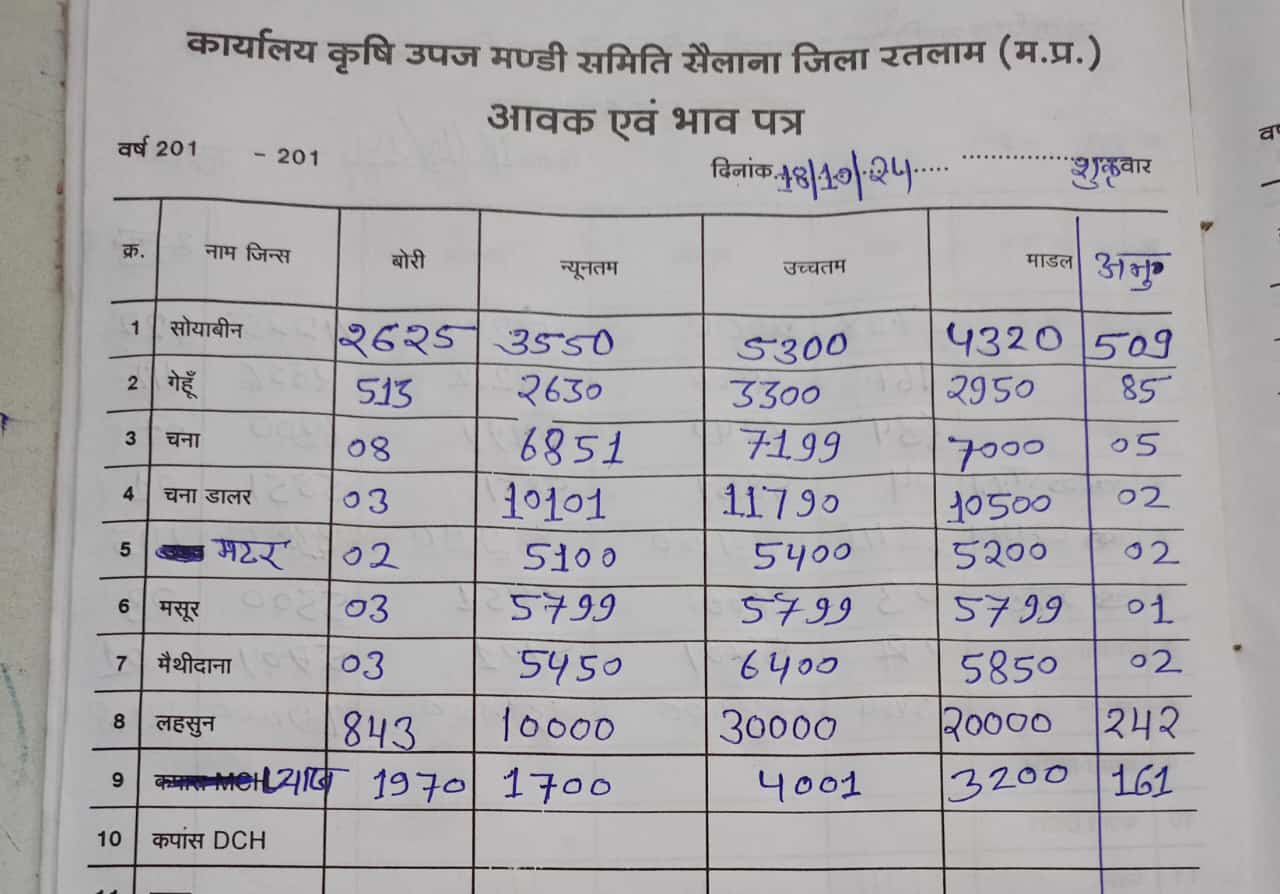 कार्यालय कृषि उपज मण्डी समिति सैलाना जिला रतलाम (म.प्र.)
आवक एवं भाव पत्र
वर्ष 201 - 201 दिनांक 18/10/24 शुक्रवार
क्र. नाम जिन्स बोरी न्यूनतम उच्चतम माडल अनु०
1 सोयाबीन २६२५ 3550 5300 4320 509
2 गेहूँ 513 २630 3300 २950 85
3 चना 08 6851 7199 7000 05
4 चना डालर 03 10101 11790 10500 02
5 मटर 02 5100 5400 5200 02
6 मसूर 03 5799 5799 5799 01
7 मैथीदाना 03 5450 6400 5850 02
8 लहसुन 843 10000 30000 20000 242
9 कपास MCH प्याज 1970 1700 4001 3200 161
10 कपांस DCH